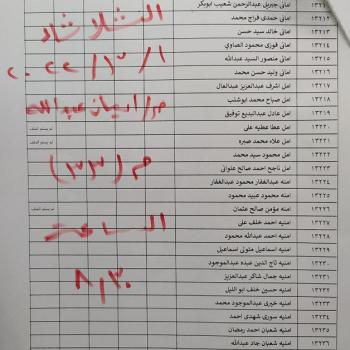 ١٣٢١١ امانى جبريل عبدالرحمن شعيب ابوبكر
١٣٢١٢ امانى حمدى فراج محمد
١٣٢١٣ امانى خالد سيد حسن
١٣٢١٤ امانى فوزى محمود الصاوي
١٣٢١٥ امانى منصور السيد عبدالله
١٣٢١٦ امانى وليد حسن محمد
١٣٢١٧ امل اشرف عبدالعزيز عبدالعال
١٣٢١٨ امل صباح محمد ابوشنب
١٣٢١٩ امل عادل عبدالبديع توفيق
١٣٢٢٠ امل عطا عطيه على
١٣٢٢١ امل علاء محمد صبره
١٣٢٢٢ امل محمود سيد محمد
١٣٢٢٣ امل ناجح احمد صالح علوانى
١٣٢٢٤ امنه عبدالغفار محمود عبدالغفار
١٣٢٢٥ امنه محمود عبيد محمود
١٣٢٢٦ امنه مؤمن صالح عثمان
١٣٢٢٧ امنيه احمد خلف على
١٣٢٢٨ امنيه احمد عبدالله محمود
١٣٢٢٩ امنيه اسماعيل متولى اسماعيل
١٣٢٣٠ امنيه تاج الدين عبده عبدالموجود
١٣٢٣١ امنيه جمال شاكر عبدالعزيز
١٣٢٣٢ امنيه حسين خلف ابو الليل
١٣٢٣٣ امنيه خيرى عبدالموجود محمد
١٣٢٣٤ امنيه سورى شهدى احمد
١٣٢٣٥ امنيه شعبان احمد رمضان
١٣٢٣٦ امنيه شعبان جاد عبدالله
الثلاثاء
٢٠٢٢/١٣/١
م/ ايمان عبدالله
م (٣٣)
الساعة
٨,٣٠